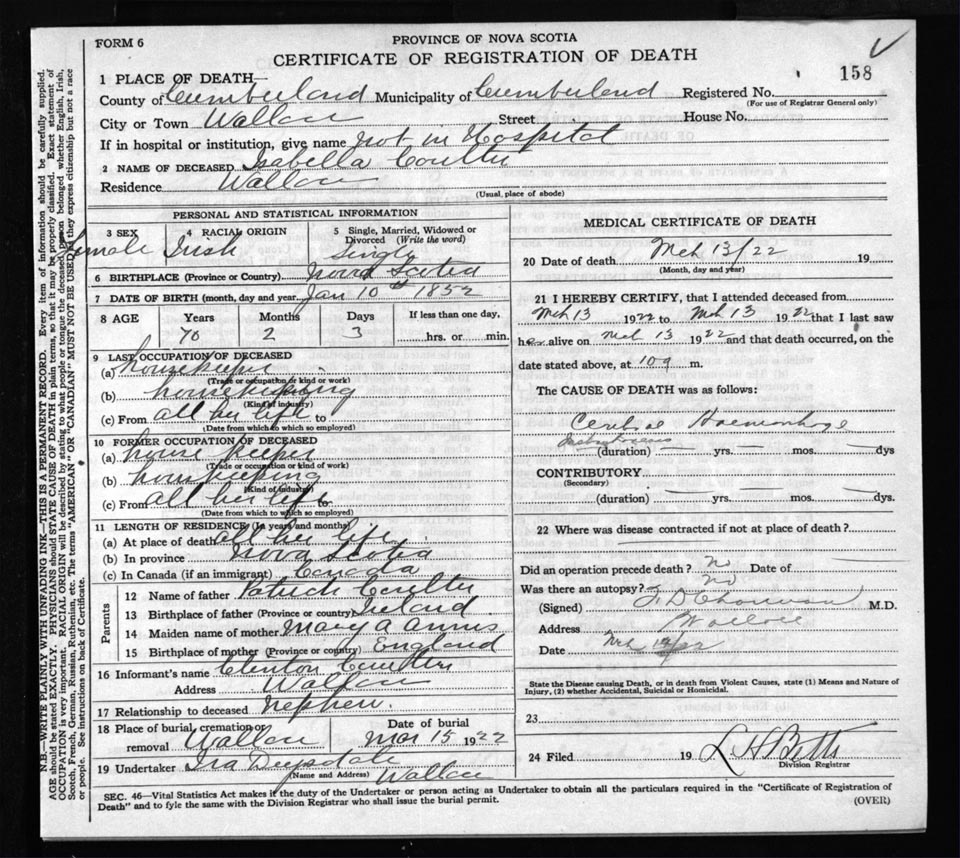 FORM 6
PROVINCE OF NOVA SCOTIA
CERTIFICATE OF REGISTRATION OF DEATH
158
1 PLACE OF DEATH—
County of Cumberland Municipality of Cumberland Registered No.
(For use of Registrar General only)
City or Town Wallace Street House No.
If in hospital or institution, give name not in Hospital
2 NAME OF DECEASED Isabella Coulter
Residence Wallace
(Usual place of abode)
PERSONAL AND STATISTICAL INFORMATION
3 SEX 4 RACIAL ORIGIN 5 Single, Married, Widowed or Divorced (Write the word)
female Irish Single
6 BIRTHPLACE (Province or Country) Nova Scotia
7 DATE OF BIRTH (month, day and year) Jan 10th 1852
8 AGE Years Months Days If less than one day,
70 2 3 hrs. or min.
9 LAST OCCUPATION OF DECEASED
(a) housekeeper
(Trade or occupation or kind of work)
(b) housekeeping
(Kind of industry)
(c) From all her life to
(Date from which to which so employed)
10 FORMER OCCUPATION OF DECEASED
(a) house keeper
(Trade or occupation or kind of work)
(b) housekeeping
(Kind of industry)
(c) From all her life to
(Date from which to which so employed)
11 LENGTH OF RESIDENCE (In years and months)
(a) At place of death all her life
(b) In province Nova Scotia
(c) In Canada (if an immigrant) Canada
Parents
12 Name of father Patrick Coulter
13 Birthplace of father (Province or country) Ireland
14 Maiden name of mother Mary A Annis
15 Birthplace of mother (Province or country) England
16 Informant's name Clenton Coulter
Address Wallace
17 Relationship to deceased nephew.
18 Place of burial, cremation or removal Wallace Date of burial Mar 15 1922
19 Undertaker Ira Drysdale
(Name and Address) Wallace
MEDICAL CERTIFICATE OF DEATH
20 Date of death Mch 13/22 19
(Month, day and year)
21 I HEREBY CERTIFY, that I attended deceased from
Mch 13 1922 to Mch 13 1922 that I last saw
her alive on Mch 13 1922 and that death occurred, on the
date stated above, at 10 a m.
The CAUSE OF DEATH was as follows:
Cerebral Haemorrhage
(duration) yrs. mos. dys
CONTRIBUTORY
(Secondary)
(duration) yrs. mos. dys.
22 Where was disease contracted if not at place of death?
Did an operation precede death? no Date of
Was there an autopsy? no
(Signed) M.D.
Address Wallace
Date Mch 14/22
State the Disease causing Death, or in death from Violent Causes, state (1) Means and Nature of
Injury, (2) whether Accidental, Suicidal or Homicidal.
23
24 Filed 19 L H Betts
Division Registrar
SEC. 46—Vital Statistics Act makes it the duty of the Undertaker or person acting as Undertaker to obtain all the particulars required in the "Certificate of Registration of
Death" and to fyle the same with the Division Registrar who shall issue the burial permit.
(OVER)
N.B.—WRITE PLAINLY WITH UNFADING INK—THIS IS A PERMANENT RECORD. Every item of information should be carefully supplied.
AGE should be stated EXACTLY. PHYSICIANS should STATE CAUSE OF DEATH in plain terms, so that it may be properly classified. Exact statement of
OCCUPATION is very important. RACIAL ORIGIN will be described by stating to what people or tongue the deceased person belonged, whether English, Irish,
Scotch, French, German, Russian, Ruthenian, etc. The terms "AMERICAN" or "CANADIAN" MUST NOT BE USED as they express citizenship but not a race
or people. See instructions on back of Certificate.